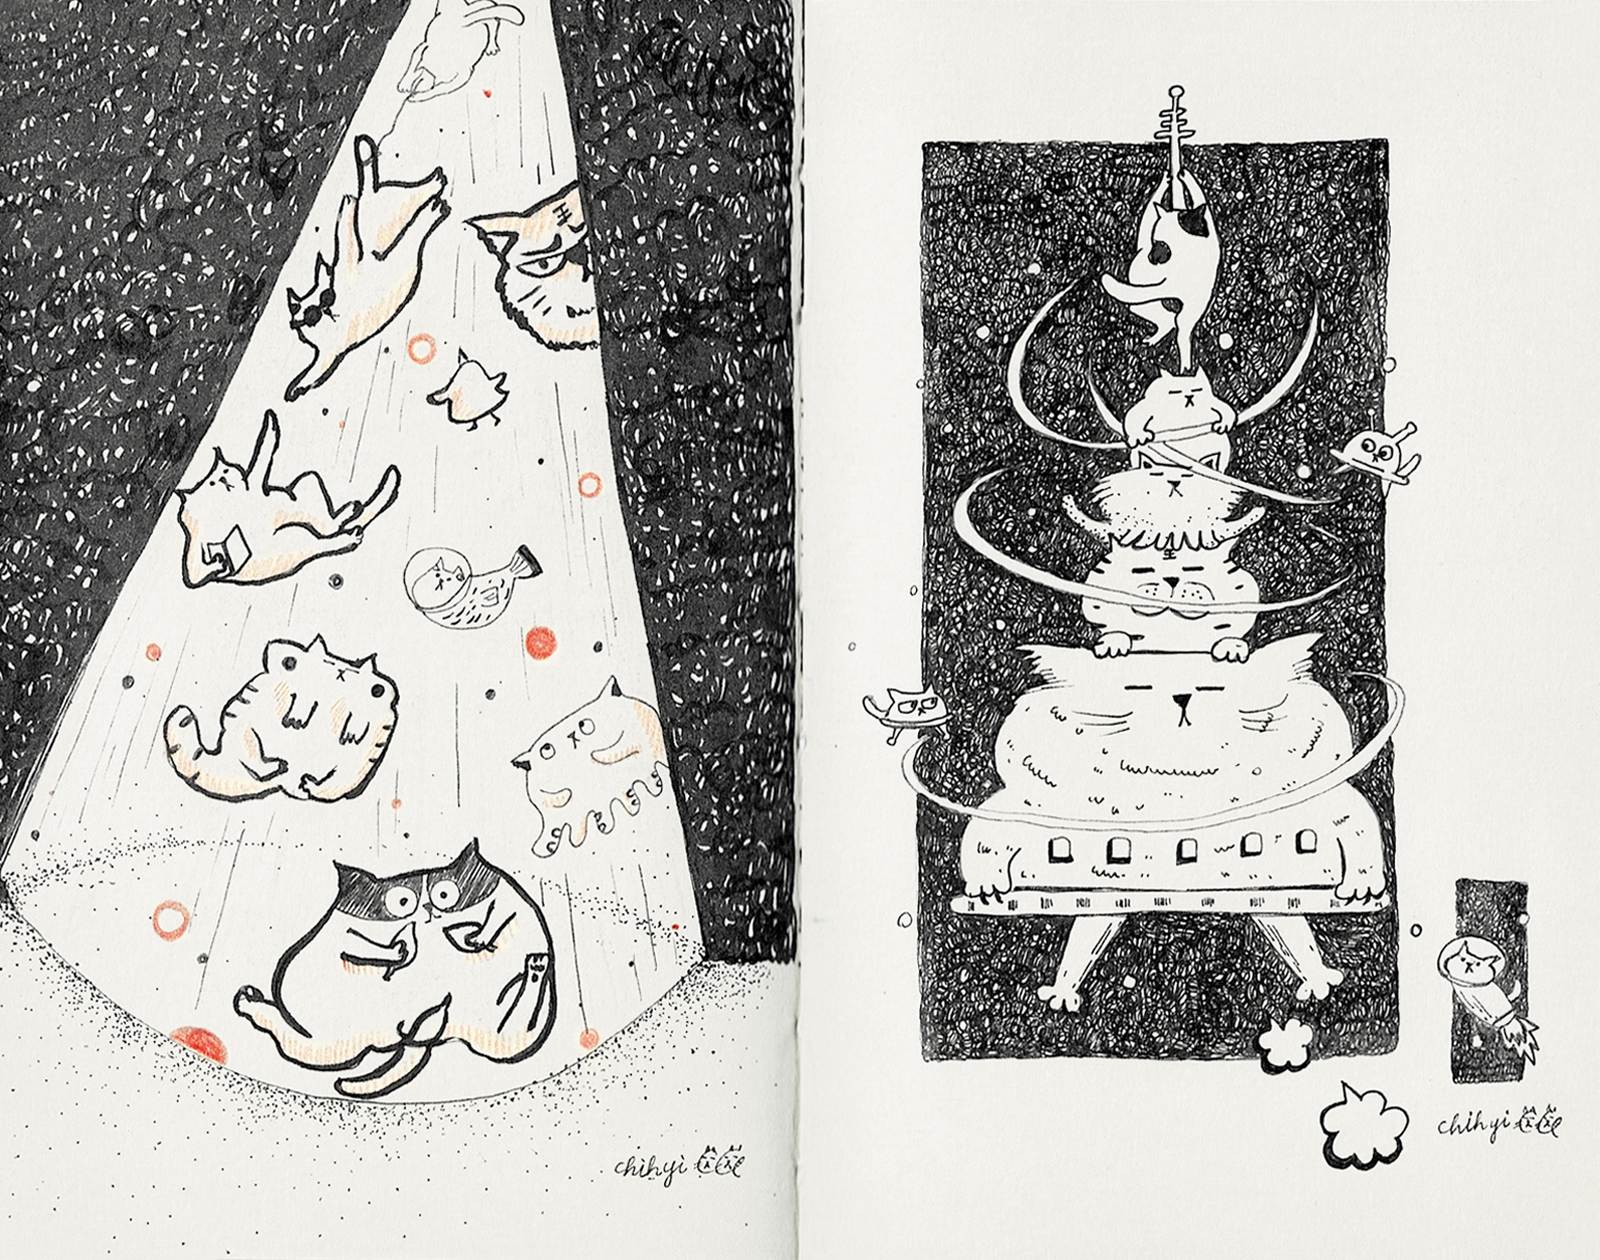 王
chihyi
王
chihyi